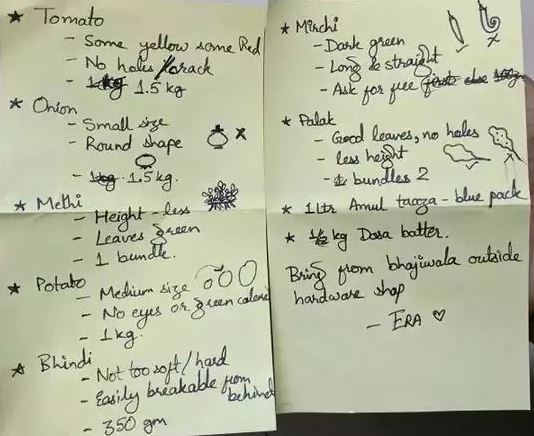 * Tomato
- Some yellow some Red
- No holes/crack
- 1kg 1.5 kg
* Onion
- Small size
- Round shape
- 1kg. 1.5 kg.
* Methi
- Height - less
- Leaves green
- 1 bundle.
* Potato
- Medium size
- No eyes or green colored
- 1kg.
* Bhindi
- Not too soft/hard
- Easily breakable from behind
- 350 gm
* Mirchi
- Dark green
- Long & straight
- Ask for free
* Palak
- Good leaves, no holes
- less height
- bundles 2
* 1 Ltr Amul taaza - blue pack
* 1/2 kg Dosa batter.
Bring from bhajiwala outside
hardware shop
- ERA ♡